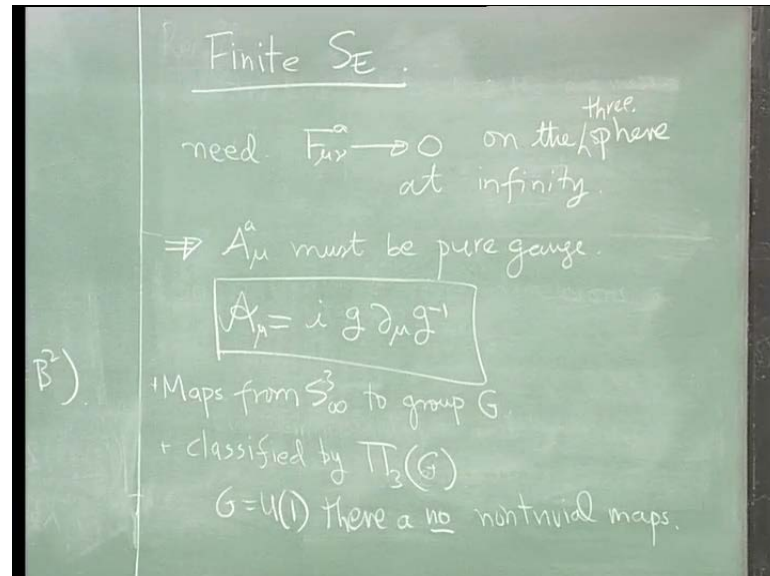 Finite S_E.
need. F^a_μν → 0 on the three. sphere
at infinity.
⇒ A^a_μ must be pure gauge.
A_μ = i g ∂_μ g^-1
B²).
+Maps from S^3_∞ to group G
+ classified by Π_3(G)
G=U(1) there a no nontrivial maps.